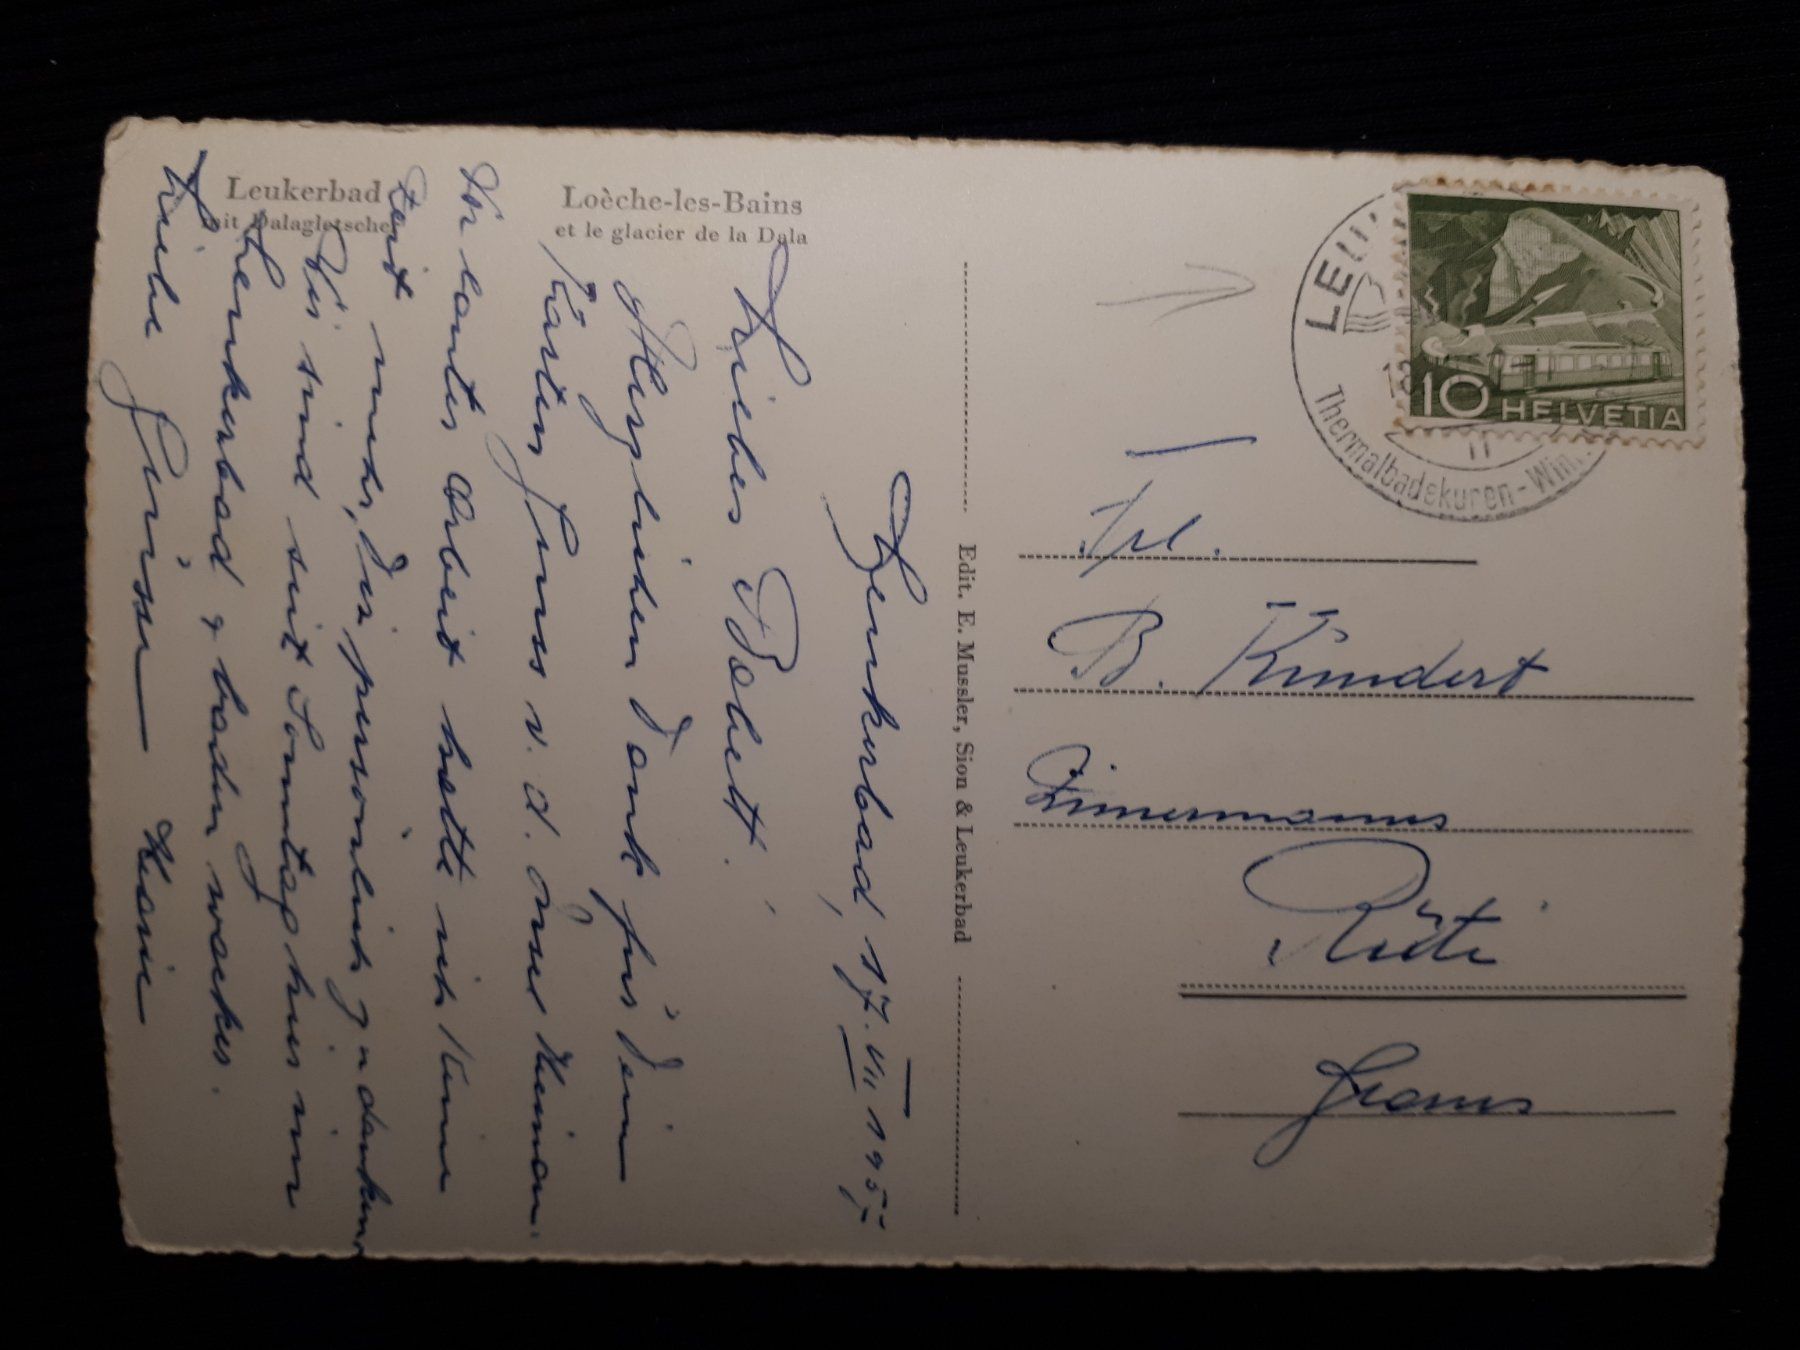 Leukerbad
mit Dalagletscher
Loèche-les-Bains
et le glacier de la Dala
Leukerbad, 17. VII 195
Liebes Babett.
Herzlichen Dank für Dein
Karten Gruss v. d.
Vor lauter Arbeit hatte ich keine
Zeit mehr, Dir persönlich z'danken,
Wir sind seit Sonntag hier in
Leukerbad & baden wacker.
Liebe Grüsse
Edit. E. Mussler, Sion & Leukerbad
LEU
Thermalbadekuren - Win
10 HELVETIA
Frl.
B. Kündert
Zimmermanns
Rüti
Glarus